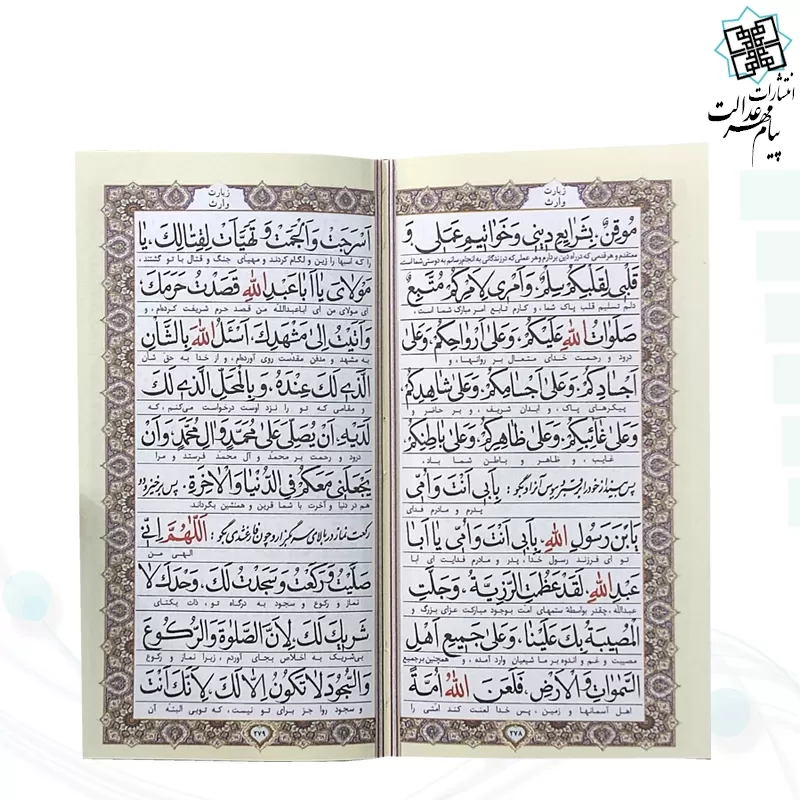 انتشارات
پیام مهر عدالت
زیارت
وارث
مُوقِنٌ، بِشَرایِعِ دینی وَخَواتیمِ عَمَلی، وَ
معتقدم و هرقدمی که درراه دین بردارم وهر عملی که درزندگانی به انجام رسانم به دوستی شما است
قَلْبی لِقَلْبِکُمْ سِلْمٌ، وَاَمْری لِاَمْرِکُمْ مُتَّبِعٌ
دلم تسلیم قلب پاک شما، و کارم تابع امر مبارک شما است،
صَلَواتُ اللهِ عَلَیْکُمْ، وَعَلی اَرْواحِکُمْ، وَعَلی
درود و رحمت خدای متعال بر روانها، و
اَجْسادِکُمْ، وَعَلی اَجْسامِکُمْ، وَعَلی شاهِدِکُمْ
پیکرهای پاک، و ابدان شریف، و بر حاضر و
وَعَلی غائِبِکُمْ، وَعَلی ظاهِرِکُمْ، وَعَلی باطِنِکُمْ
غایب، و ظاهر و باطن شما باد.
پس بینداز خود را بر قبر و ببوس آن را و بگو: بِاَبی اَنْتَ وَاُمّی
پدرم و مادرم فدای
یَابْنَ رَسُولِ اللهِ، بِاَبی اَنْتَ وَاُمّی یا اَبا
تو ای فرزند رسول خدا، پدر و مادرم فدایت ای ابا
عَبْدِاللهِ، لَقَدْ عَظُمَتِ الرَّزِیَّةُ، وَجَلَّتِ
عبدالله، چقدر بواسطه ستمهای امت بوجود مبارکت عزای بزرگ و
الْمُصیبَةُ بِکَ عَلَیْنا، وَعَلی جَمیعِ اَهْلِ
مصیبت و غم و اندوه بر ما شیعیان وارد آمده، و همچنین برجمیع
السَّمواتِ وَالْاَرْضِ، فَلَعَنَ اللهُ اُمَّةً
اهل آسمانها و زمین، پس خدا لعنت کند امتی را
۲۷۸
زیارت
وارث
اَسْرَجَتْ وَاَلْجَمَتْ وَ تَهَیَّأَتْ لِقِتالِکَ، یا
را که اسبها را زین و لگام کردند و مهیای جنگ و قتال با تو گشتند،
مَوْلایَ یا اَباعَبْدِاللهِ قَصَدْتُ حَرَمَکَ
ای مولای من ای اباعبدالله من قصد حرم شریفت کرده‌ام، و
وَاَتَیْتُ اِلی مَشْهَدِکَ، اَسْئَلُ اللهَ بِالشَّاْنِ
به مشهد و مدفن مقدست روی آورده‌ام، و از خدا به حق شأن
الَّذی لَکَ عِنْدَهُ، وَ بِالْمَحَلِّ الَّذی لَکَ
و مقامی که تو را نزد اوست درخواست می‌کنم، که
لَدَیْهِ، اَنْ یُصَلِّیَ عَلی مُحَمَّدٍ وَ الِ مُحَمَّدٍ، وَاَنْ
درود و رحمت بر محمد و آل محمد فرستد و مرا
یَجْعَلَنی مَعَکُمْ فِی الدُّنْیا وَالْاخِرَةِ. پس برخیز و دو
هم در دنیا و آخرت با شما قرین و همنشین بگرداند.
رکعت نماز در بالای سر بگزار و چون فارغ شدی بگو: اَللّهُمَّ اِنّی
الهی من
صَلَّیْتُ وَ رَکَعْتُ وَ سَجَدْتُ لَکَ، وَحْدَکَ لا
نماز و رکوع و سجود به درگاه تو، ذات یکتای
شَریکَ لَکَ، لِاَنَّ الصَّلوةَ وَالرُّکُوعَ
بی‌شریک به اخلاص بجای آوردم، زیرا نماز و رکوع
وَالسُّجُودَ لا تَکُونُ اِلّا لَکَ، لِاَنَّکَ اَنْتَ
و سجود روا جز برای تو نیست، که تویی البته آن
۲۷۹